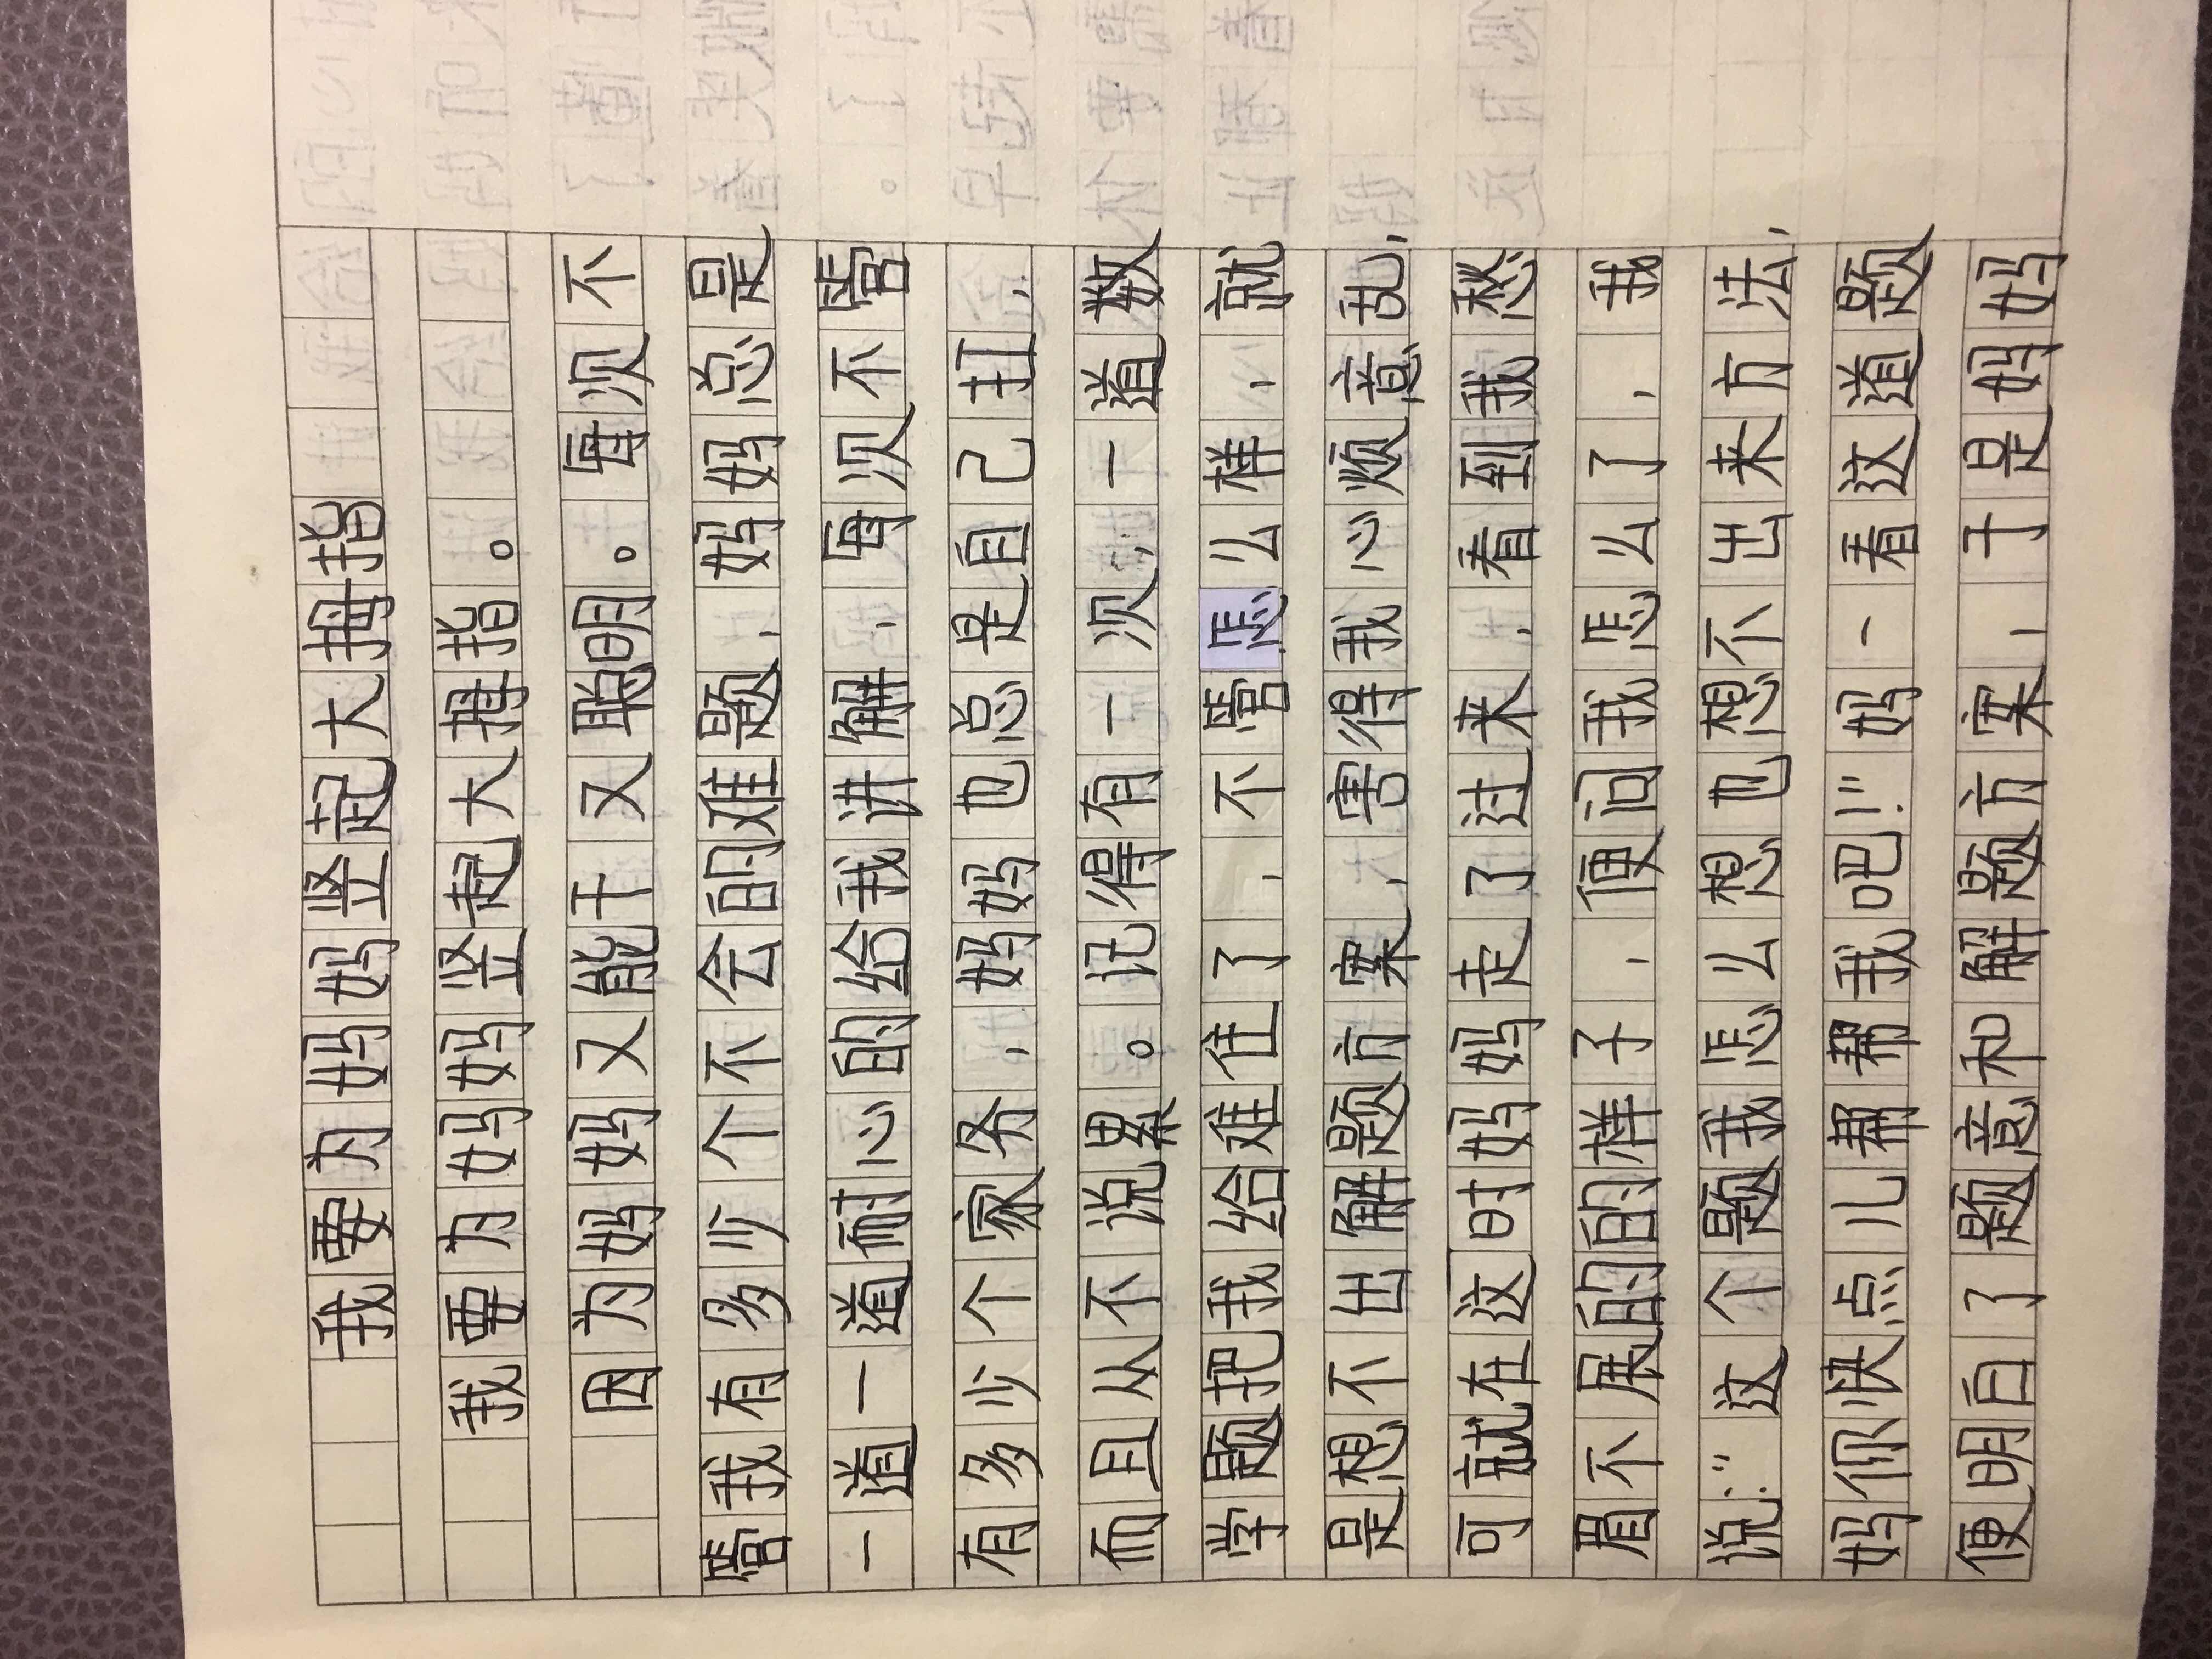 我要为妈妈竖起大拇指
我要为妈妈竖起大拇指。
因为妈妈又能干又聪明。每次不
管我有多少个不会的难题,妈妈总是
一道一道耐心的给我讲解,每次不管
有多少个家务,妈妈也总是自己扛,
而且从不说累。记得有一次,一道数
学题把我给难住了,不管怎么样,就
是想不出解题方案,害得我心烦意乱,
可就在这时妈妈走了过来,看到我愁
眉不展的的样子,便问我怎么了,我
说:“这个题我怎么想也想不出来方法,
妈你快点儿帮帮我吧!”妈一看这道题
便明白了题意和解题方案,于是妈妈